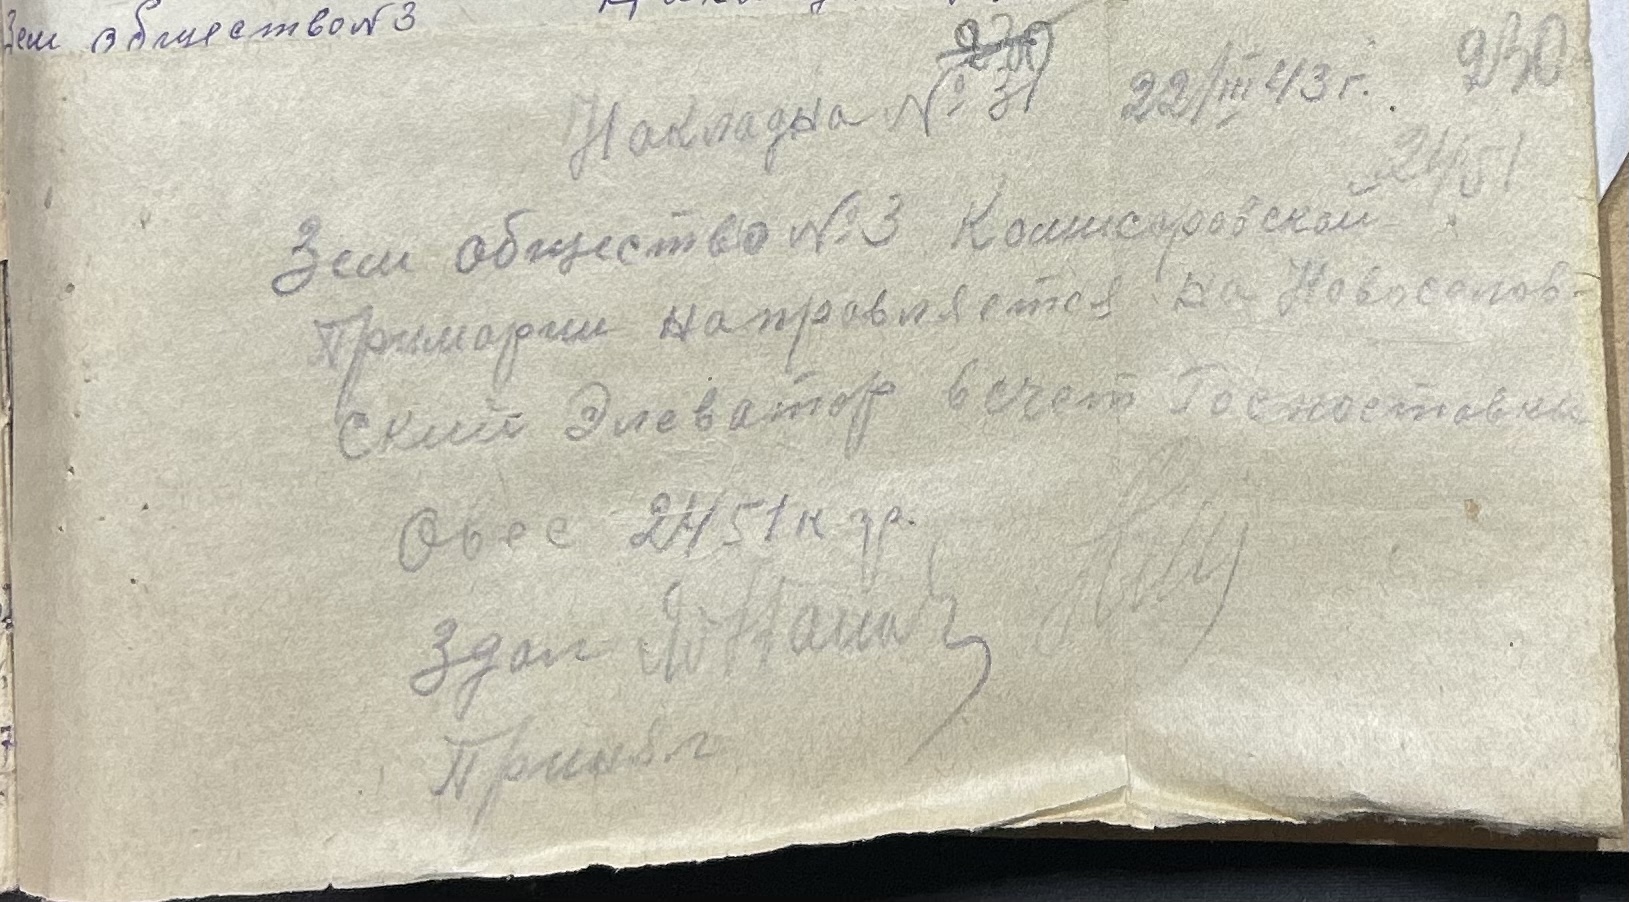 Зем общество №3
230
Накладна № 31 22/III 43 г.
2451
Зем общество №3 Комисаровской
Примарии направляется на Новоселов-
ский Элеватор в счет Госпоставки
Овес 2451 к гр.
Здал
Принял